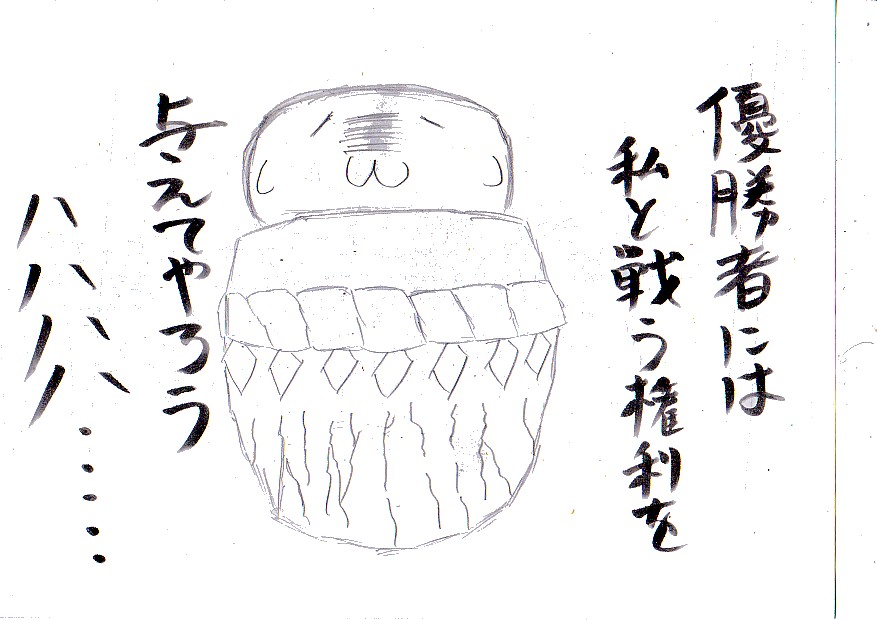 優勝者には
私と戦う権利を
与えてやろう
ハハハハ‥‥‥